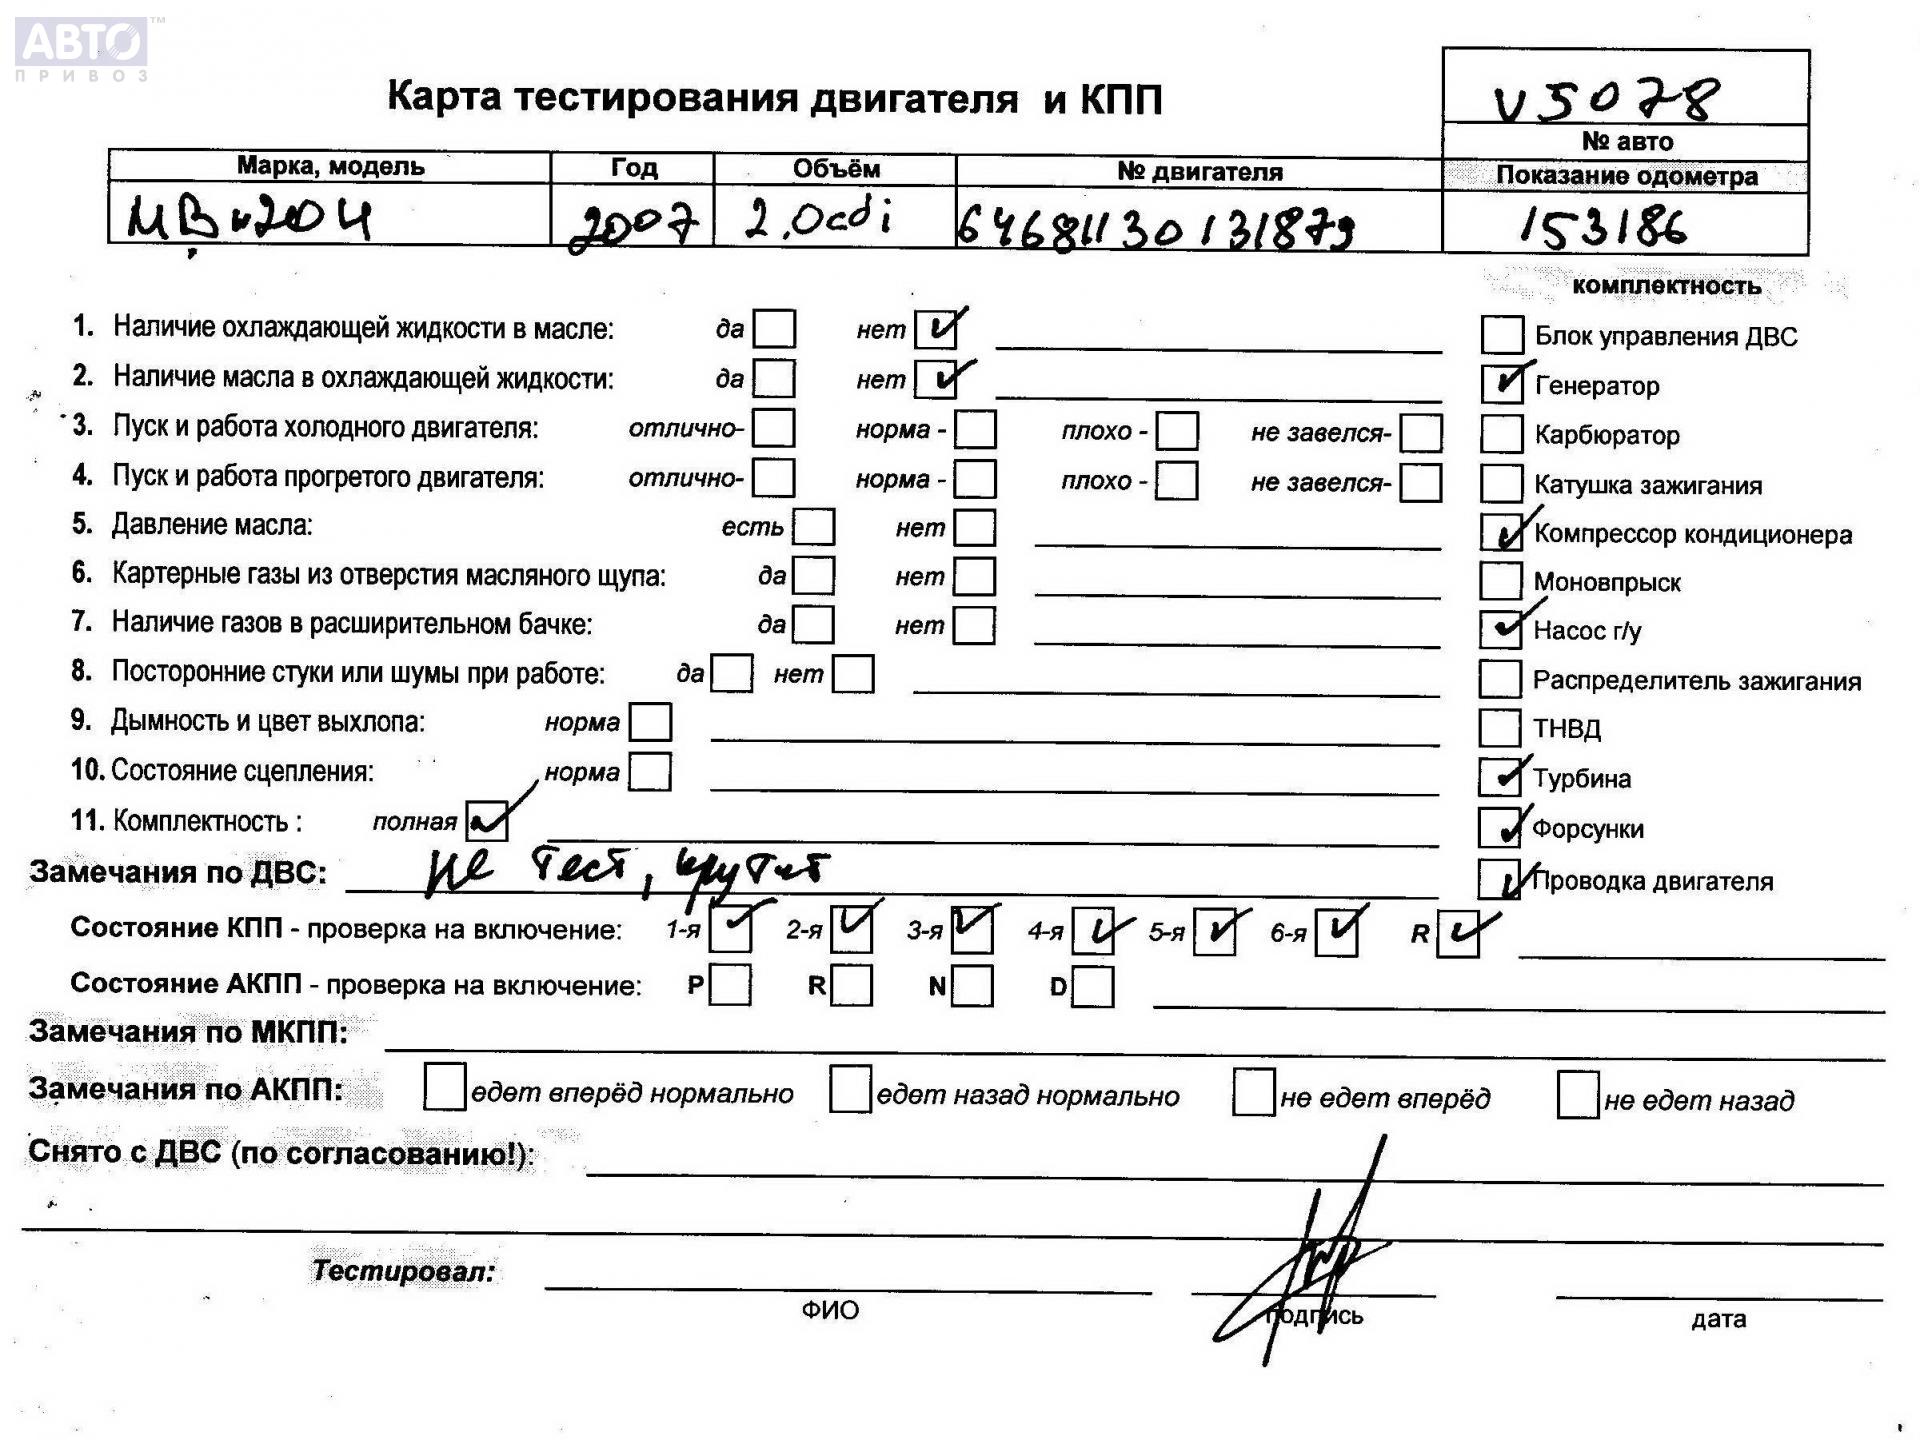 АВТО™
ПРИВОЗ
Карта тестирования двигателя и КПП
V5078
№ авто
Марка, модель Год Объём № двигателя Показание одометра
2007 2.0cdi 64681130131879 153186
комплектность
1. Наличие охлаждающей жидкости в масле: да нет Блок управления ДВС
2. Наличие масла в охлаждающей жидкости: да нет Генератор
3. Пуск и работа холодного двигателя: отлично- норма - плохо - не завелся- Карбюратор
4. Пуск и работа прогретого двигателя: отлично- норма - плохо - не завелся- Катушка зажигания
5. Давление масла: есть нет Компрессор кондиционера
6. Картерные газы из отверстия масляного щупа: да нет Моновпрыск
7. Наличие газов в расширительном бачке: да нет Насос г/у
8. Посторонние стуки или шумы при работе: да нет Распределитель зажигания
9. Дымность и цвет выхлопа: норма ТНВД
10. Состояние сцепления: норма Турбина
11. Комплектность : полная Форсунки
Замечания по ДВС: не тест, крутит Проводка двигателя
Состояние КПП - проверка на включение: 1-я 2-я 3-я 4-я 5-я 6-я R
Состояние АКПП - проверка на включение: P R N D
Замечания по МКПП:
Замечания по АКПП: едет вперёд нормально едет назад нормально не едет вперёд не едет назад
Снято с ДВС (по согласованию!):
Тестировал:
ФИО подпись дата